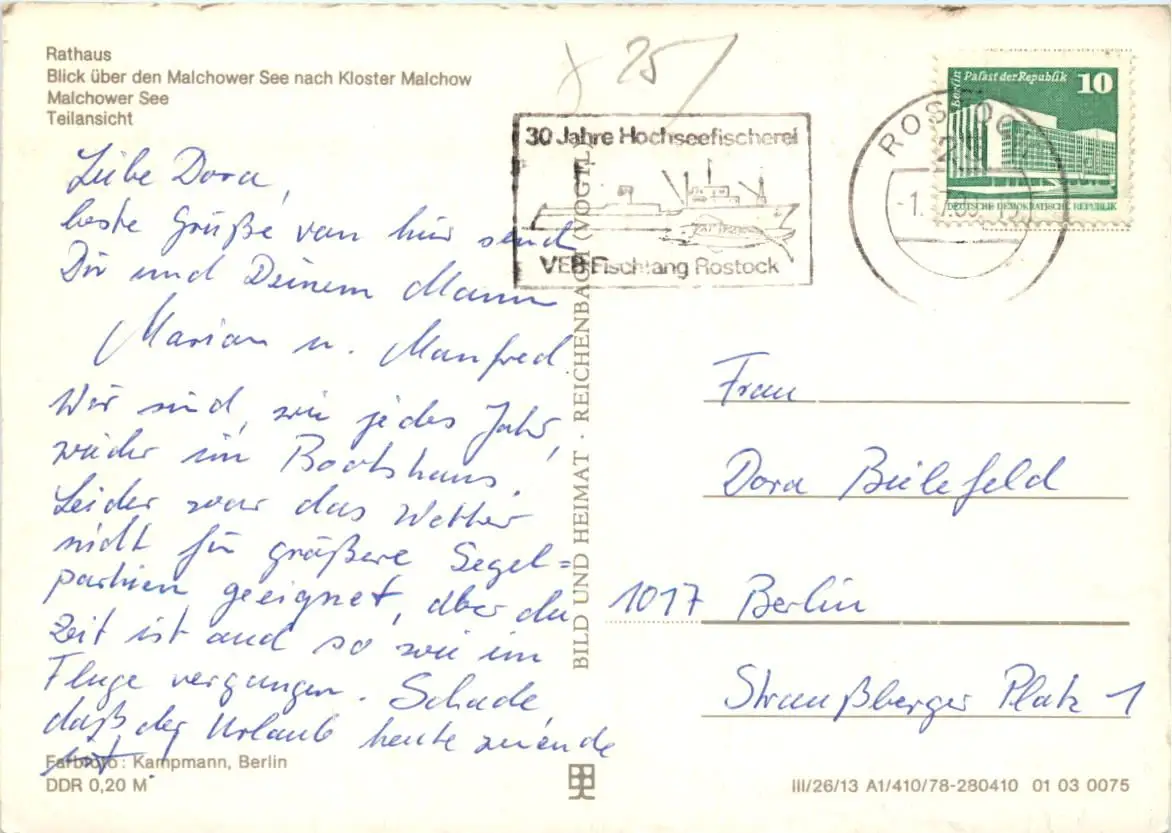 Rathaus
Blick über den Malchower See nach Kloster Malchow
Malchower See
Teilansicht
Liebe Dora,
beste Grüße von hier send
Dir und Deinem Mann
Marian u. Manfred.
Wir sind, wie jedes Jahr,
wieder im Bootshaus.
Leider war das Wetter
nicht für größere Segel=
partien geeignet, aber die
Zeit ist auch so wie im
Fluge vergangen. Schade,
daß der Urlaub heute zuende
ist.
Farbfoto: Kampmann, Berlin
DDR 0,20 M
BILD UND HEIMAT · REICHENBACH (VOGTL)
25
30 Jahre Hochseefischerei
VEB Fischfang Rostock
ROSTOC
Berlin
Palast der Republik
10
DEUTSCHE DEMOKRATISCHE REPUBLIK
Frau
Dora Bielefeld
1017 Berlin
Straußberger Platz 1
III/26/13 A1/410/78-280410 01 03 0075